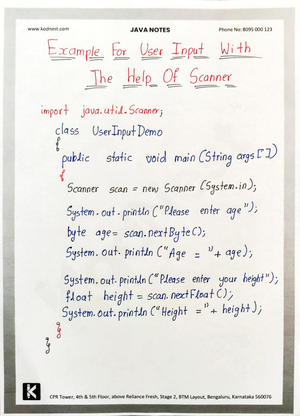 www.kodnest.com JAVA NOTES Phone No: 8095 000 123
Example For User Input With
The Help Of Scanner
import java.util.Scanner;
class UserInputDemo
{
public static void main (String args [])
{
Scanner scan = new Scanner (System.in);
System.out.println ("Please enter age");
byte age = scan.nextByte();
System.out.println ("Age = "+ age);
System.out.println ("Please enter your height");
float height = scan.nextFloat();
System.out.println ("Height = "+ height);
}
}
K
CPR Tower, 4th & 5th Floor, above Reliance Fresh, Stage 2, BTM Layout, Bengaluru, Karnataka 560076